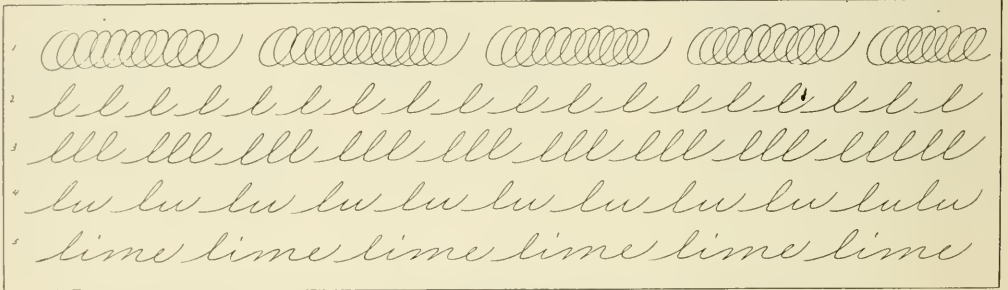 1
2 l l l l l l l l l l l l l l l l l l
3 lll lll lll lll lll lll lll lll lllll
4 lu lu lu lu lu lu lu lu lu lulu
5 lime lime lime lime lime lime